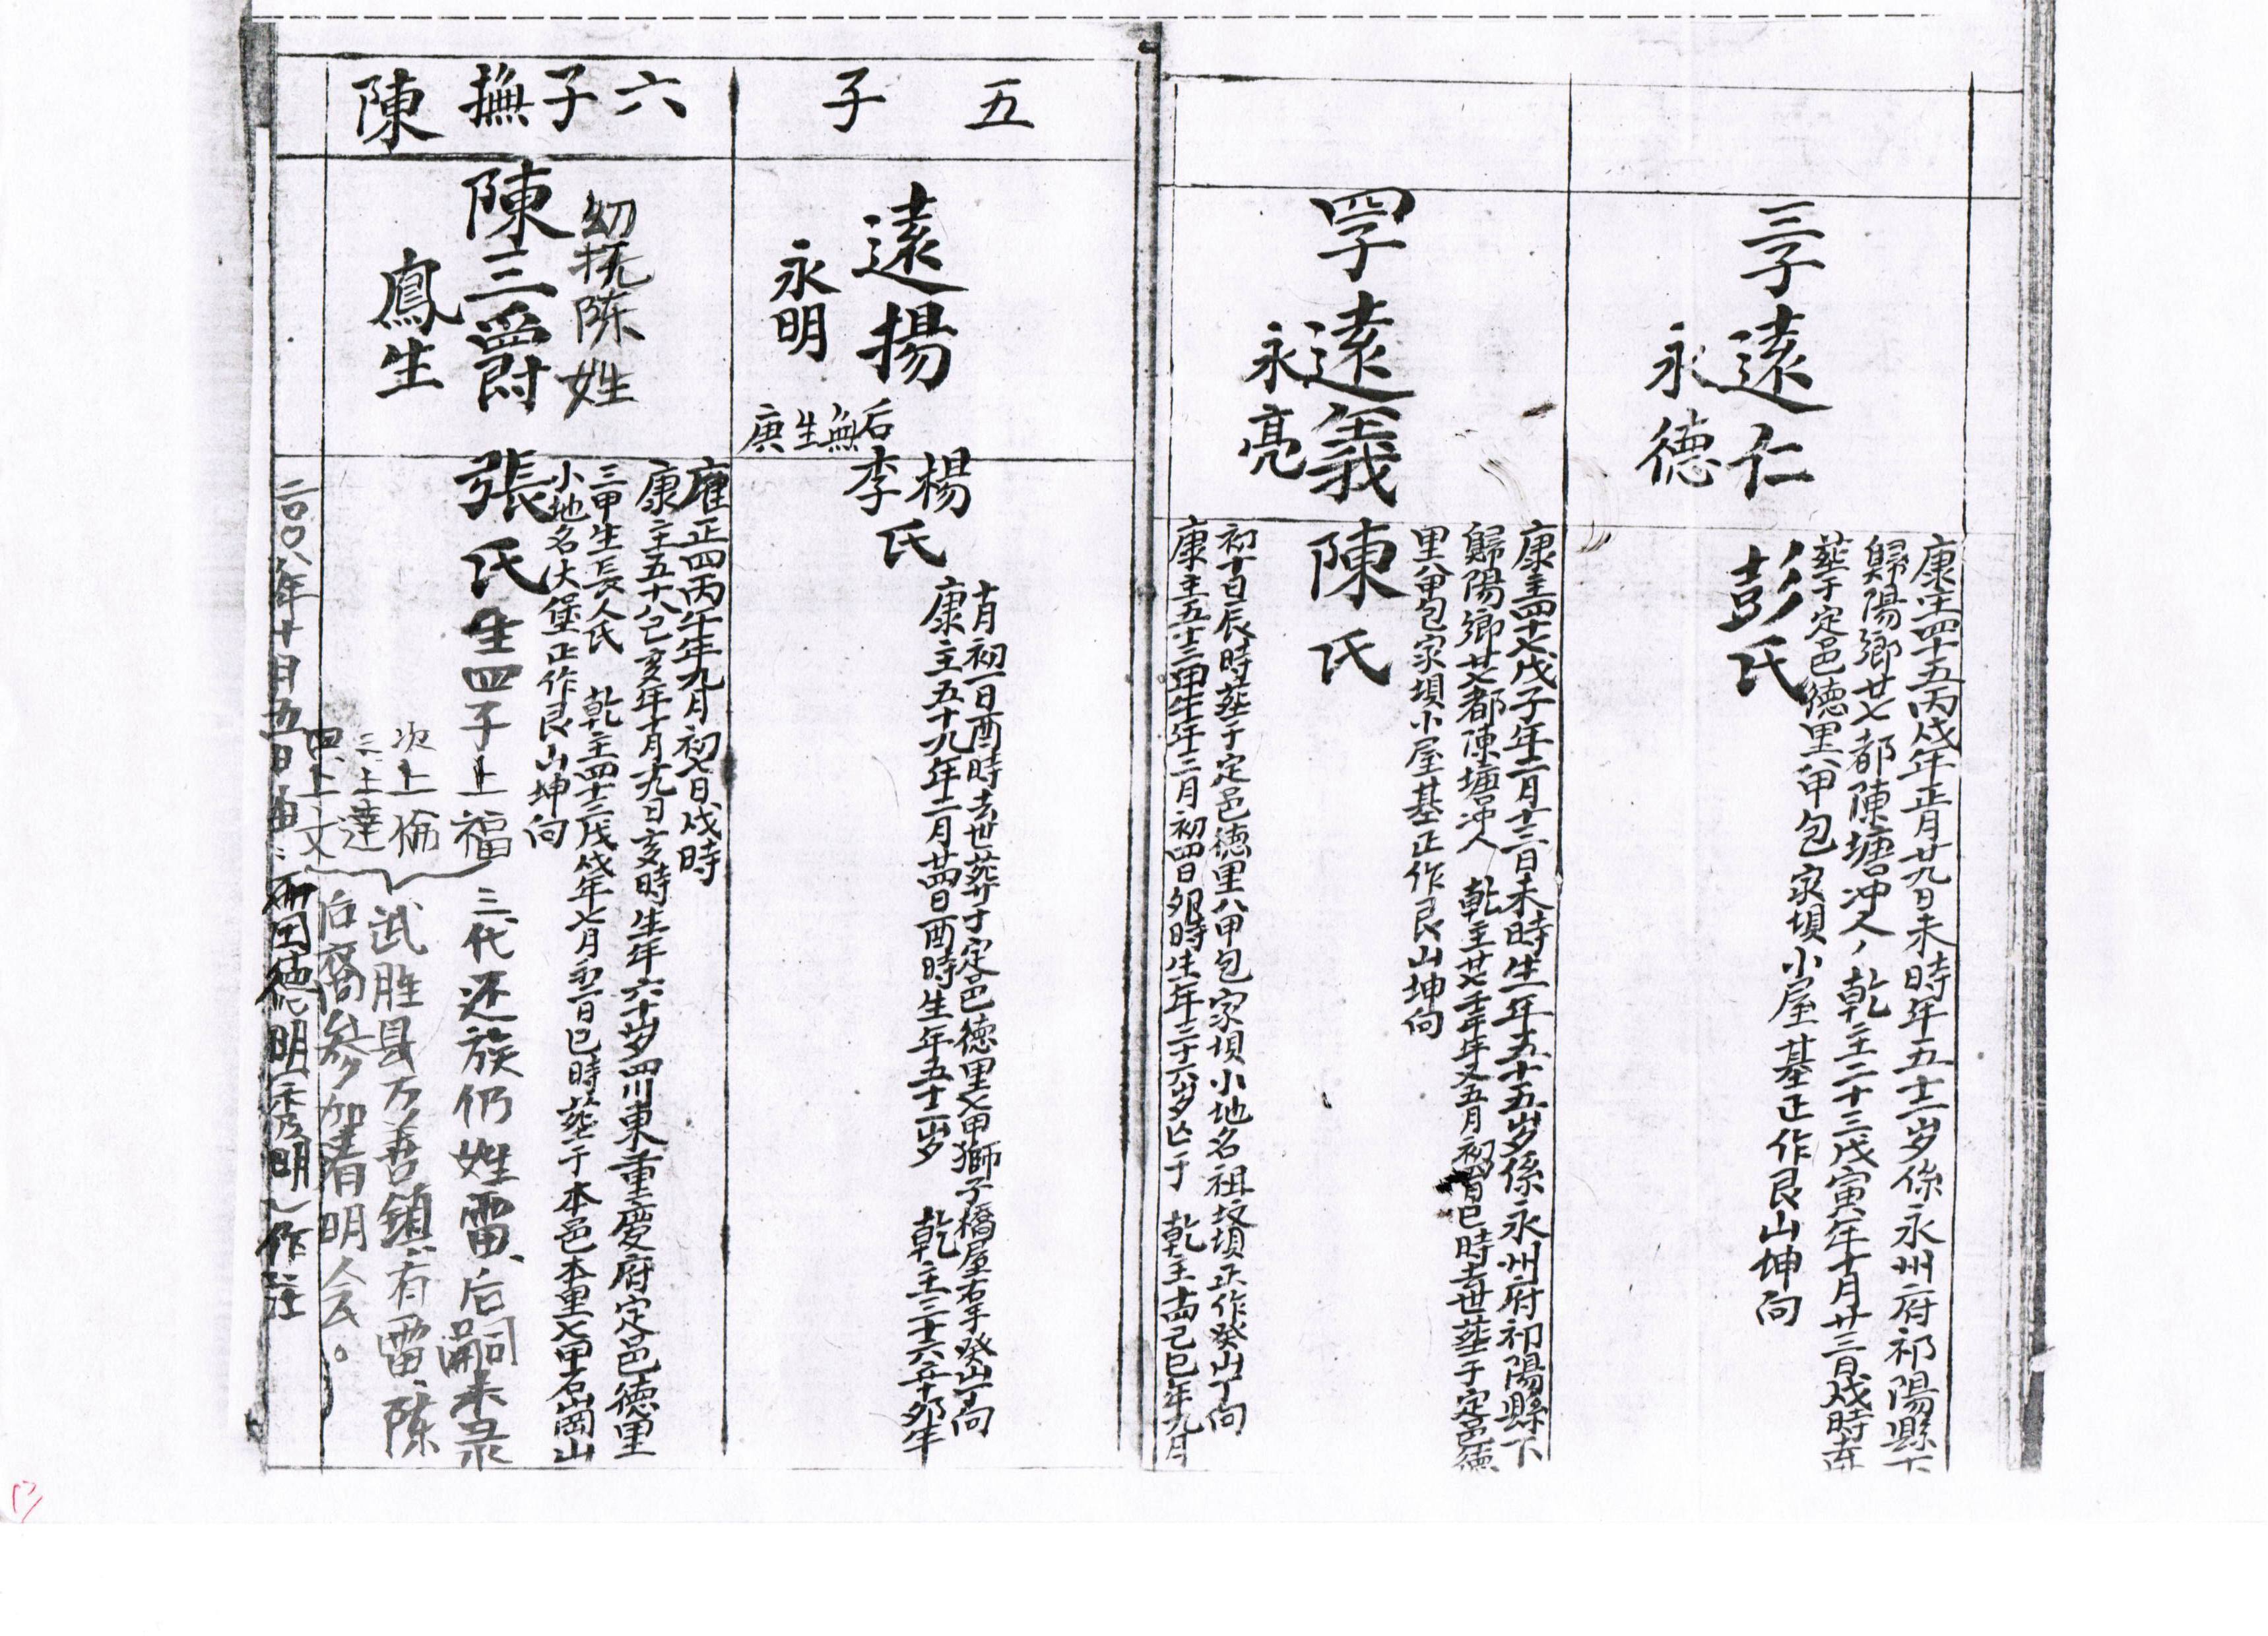 三子遠仁
永德
康主四十五丙戌年正月廿九日未時年五十二岁係永州府祁陽縣下
歸陽鄉廿七都陳塘冲人乾主二十三戊寅年十月廿三日戌時去世
葬于定邑德里八甲包家垻小屋基正作艮山坤向
彭氏
四子遠義
永亮
康主四十七戊子年二月十三日未時生年五十五岁係永州府祁陽縣下
歸陽鄉廿七都陳塘冲人乾主廿七壬午年又五月初四日巳時去世葬于定邑德
里八甲包家垻小屋基正作艮山坤向
陳氏
初十日辰時葬于定邑德里八甲包家垻小地名祖坟垻正作癸山丁向
康主五十三甲午年二月初四日卯時生年三十六岁亡于乾主十四己巳年九月
五子
遠揚
永明
后無生庚
楊李氏
十月初一日酉時去世葬于定邑德里七甲獅子橋屋右手癸山丁向
康主五十九年二月廿四日酉時生年五十二岁乾主三十六辛卯年
六子撫陳
幼抚陈姓
陳三爵
鳳生
雍正四丙午年九月初七日戌時
康主五十八己亥年十月十九日亥時生年六十岁四川東重慶府定邑德里
三甲生長人氏乾主四十三戊戌年七月初二日巳時葬于本邑本里七甲石崗山
小地名大堡正作艮山坤向
張氏生四子上福
次上倫
三上達
四上文
三代还族仍姓雷、后嗣未录
武胜县万善镇、有雷、陈
后裔参加看明会。
二00八年十月五日由:德明宗明作註